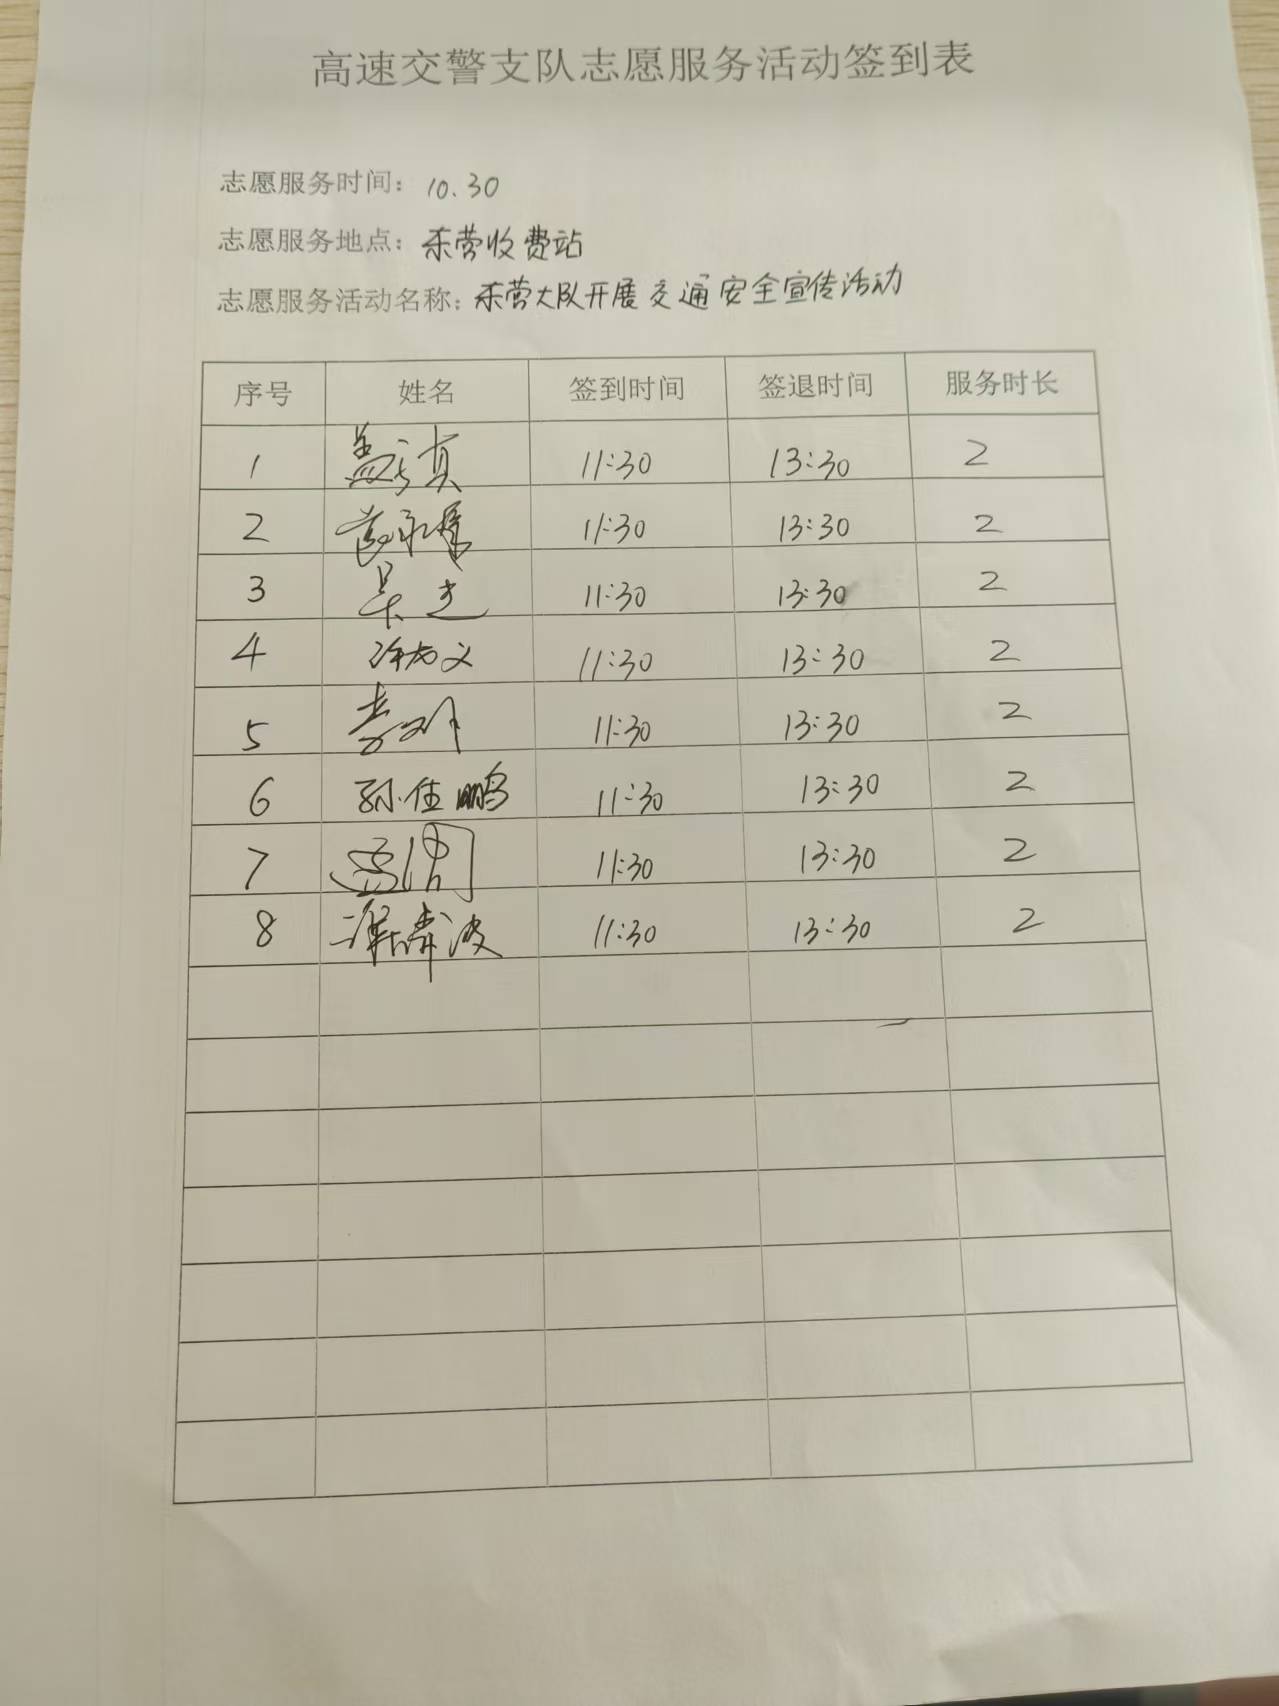 高速交警支队志愿服务活动签到表
志愿服务时间：10.30
志愿服务地点：东营收费站
志愿服务活动名称：东营大队开展交通安全宣传活动
序号 姓名 签到时间 签退时间 服务时长
1 11:30 13:30 2
2 11:30 13:30 2
3 11:30 13:30 2
4 11:30 13:30 2
5 11:30 13:30 2
6 孙佳鹏 11:30 13:30 2
7 11:30 13:30 2
8 11:30 13:30 2